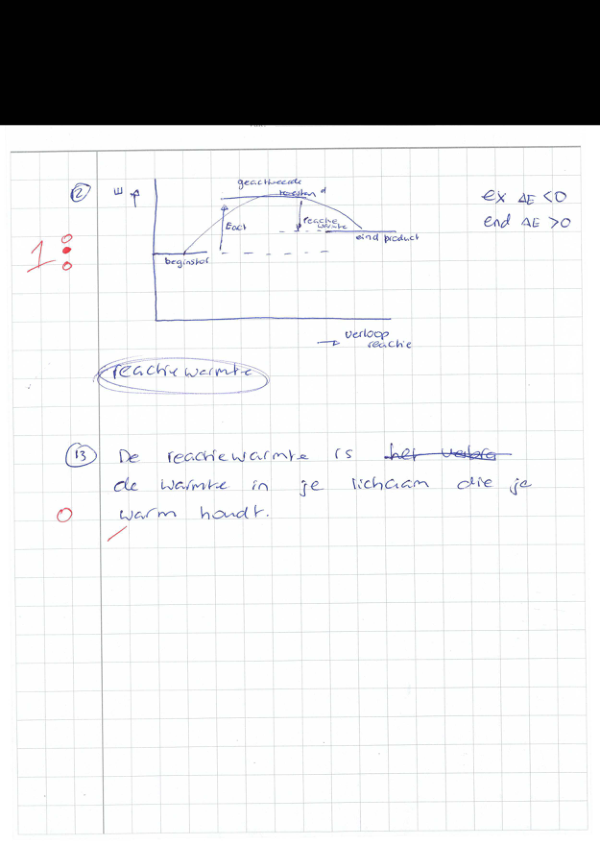 12 E geactiveerde
toestand
ex ΔE <0
end ΔE >0
Eact
reactie
warmte
1
eind product
beginstof
verloop
reactie
reactiewarmte
13 De reactiewarmte is
de warmte in je lichaam die je
warm houdt.